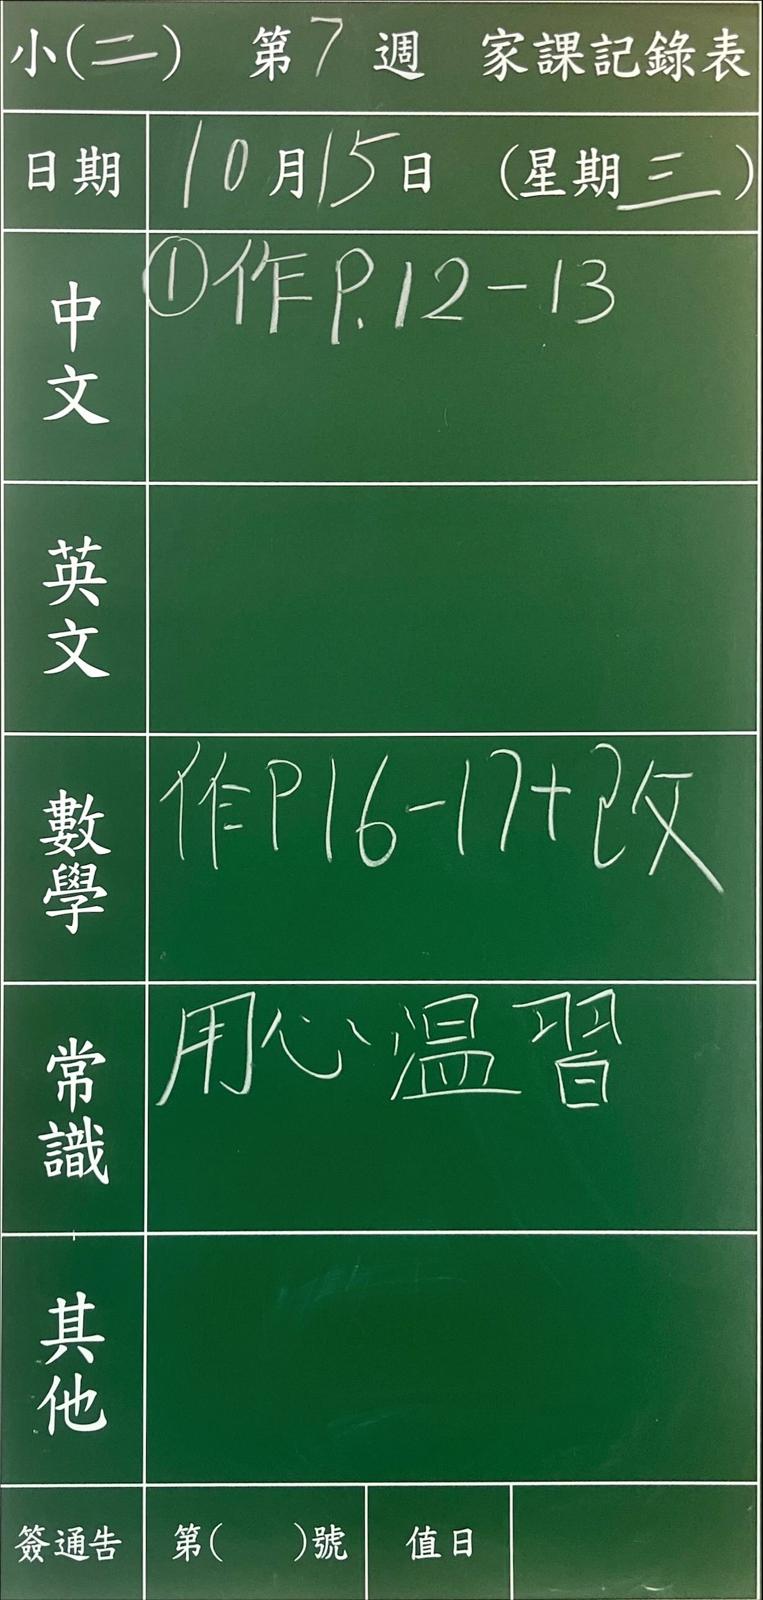 小(二) 第7週 家課記錄表
日期 10月15日 (星期三)
中文 ①作P.12-13
英文
數學 作P16-17+改
常識 用心温習
其他
簽通告 第( )號 值日